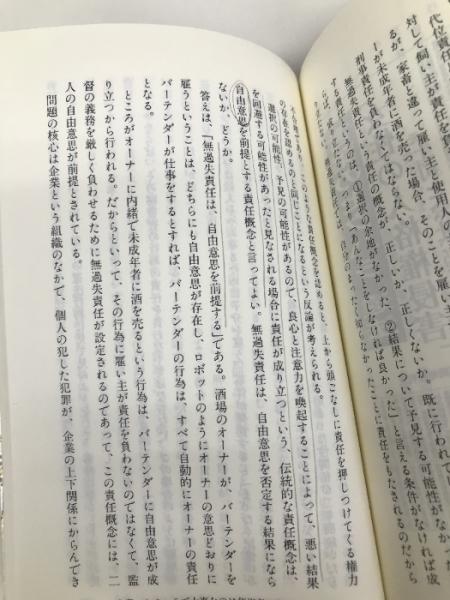 代位責任
対して飼い主が責任を
るが、家畜と違って、雇い主と使用人の
が未成年者に酒を売った場合、そのことを雇い主
刑事責任を負わなくてはならない。
無過失責任という責任の概念が、正しいか、正しくないか。既に行われて
する責任というのは、①選択の余地がなかった、②結果について予見する可能性がな
らば、つまり「あんなことをしなければ良かった」と言える条件がなければ成
自分のまったく知らなかったことに責任をもたされるのだから
このような責任概念を認めると、上から頭ごなしに責任を押しつけてくる権力
の存在を認めるのと同じことになるという反論が考えられる。
選択の可能性、予見の可能性があるので、良心と注意力を喚起することによって、悪い結果
を回避する可能性があったと見なされる場合に責任が成り立つという、伝統的な責任概念は、
自由意思を前提とする責任概念と言ってよい。無過失責任は、自由意思を否定する結果になら
ないか、どうか。
答えは、「無過失責任は、自由意思を前提する」である。酒場のオーナーが、バーテンダーを
雇うということは、どちらにも自由意思が存在し、ロボットのようにオーナーの意思どおりに
バーテンダーが仕事をするとすれば、バーテンダーの行為は、すべて自動的にオーナーの責任
となる。
ところがオーナーに内緒で未成年者に酒を売るという行為は、バーテンダーに自由意思が成
り立つから行われる。だからといって、その行為に雇い主が責任を負わないのではなくて、監
督の義務を厳しく負わせるために無過失責任が設定されるのであって、この責任概念には、二
人の自由意思が前提とされている。
問題の核心は企業という組織のなかで、個人の犯した犯罪が、企業の上下関係にからんでき